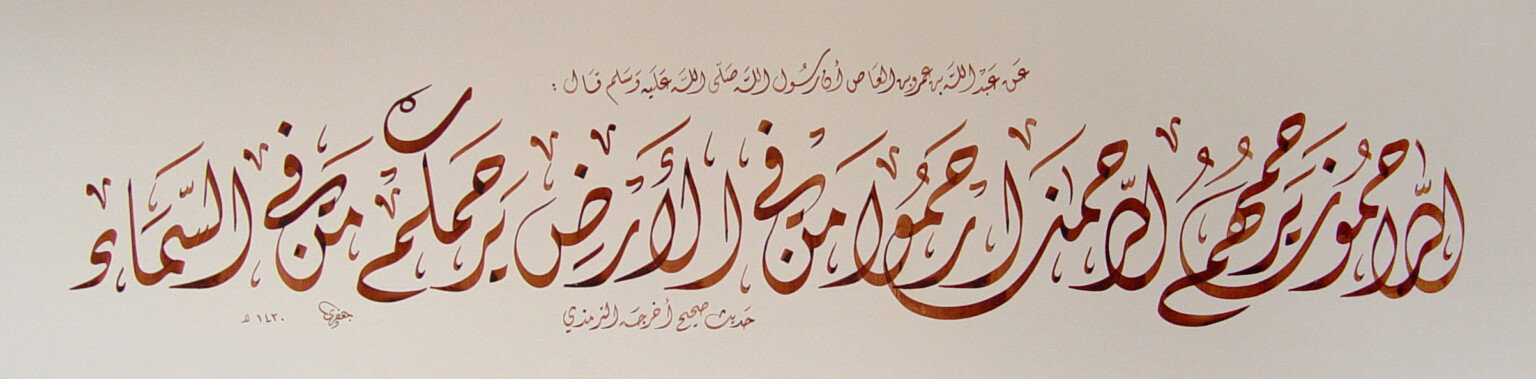 عَن عَبْد اللَّه بن عمرو بن العَاص أن رسُول اللَّه صَلّى اللَّه عَلَيه وَسَلم قَال :
الرَّاحمُون يَرحمُهُمُ الرَّحمن ارحَمُوا مَن في الأَرضِ يَرحَمكم مَن في السَّمَاء
حَديث صَحيح أخرجَه الترمذي
جعفري ١٤٣٠ هـ